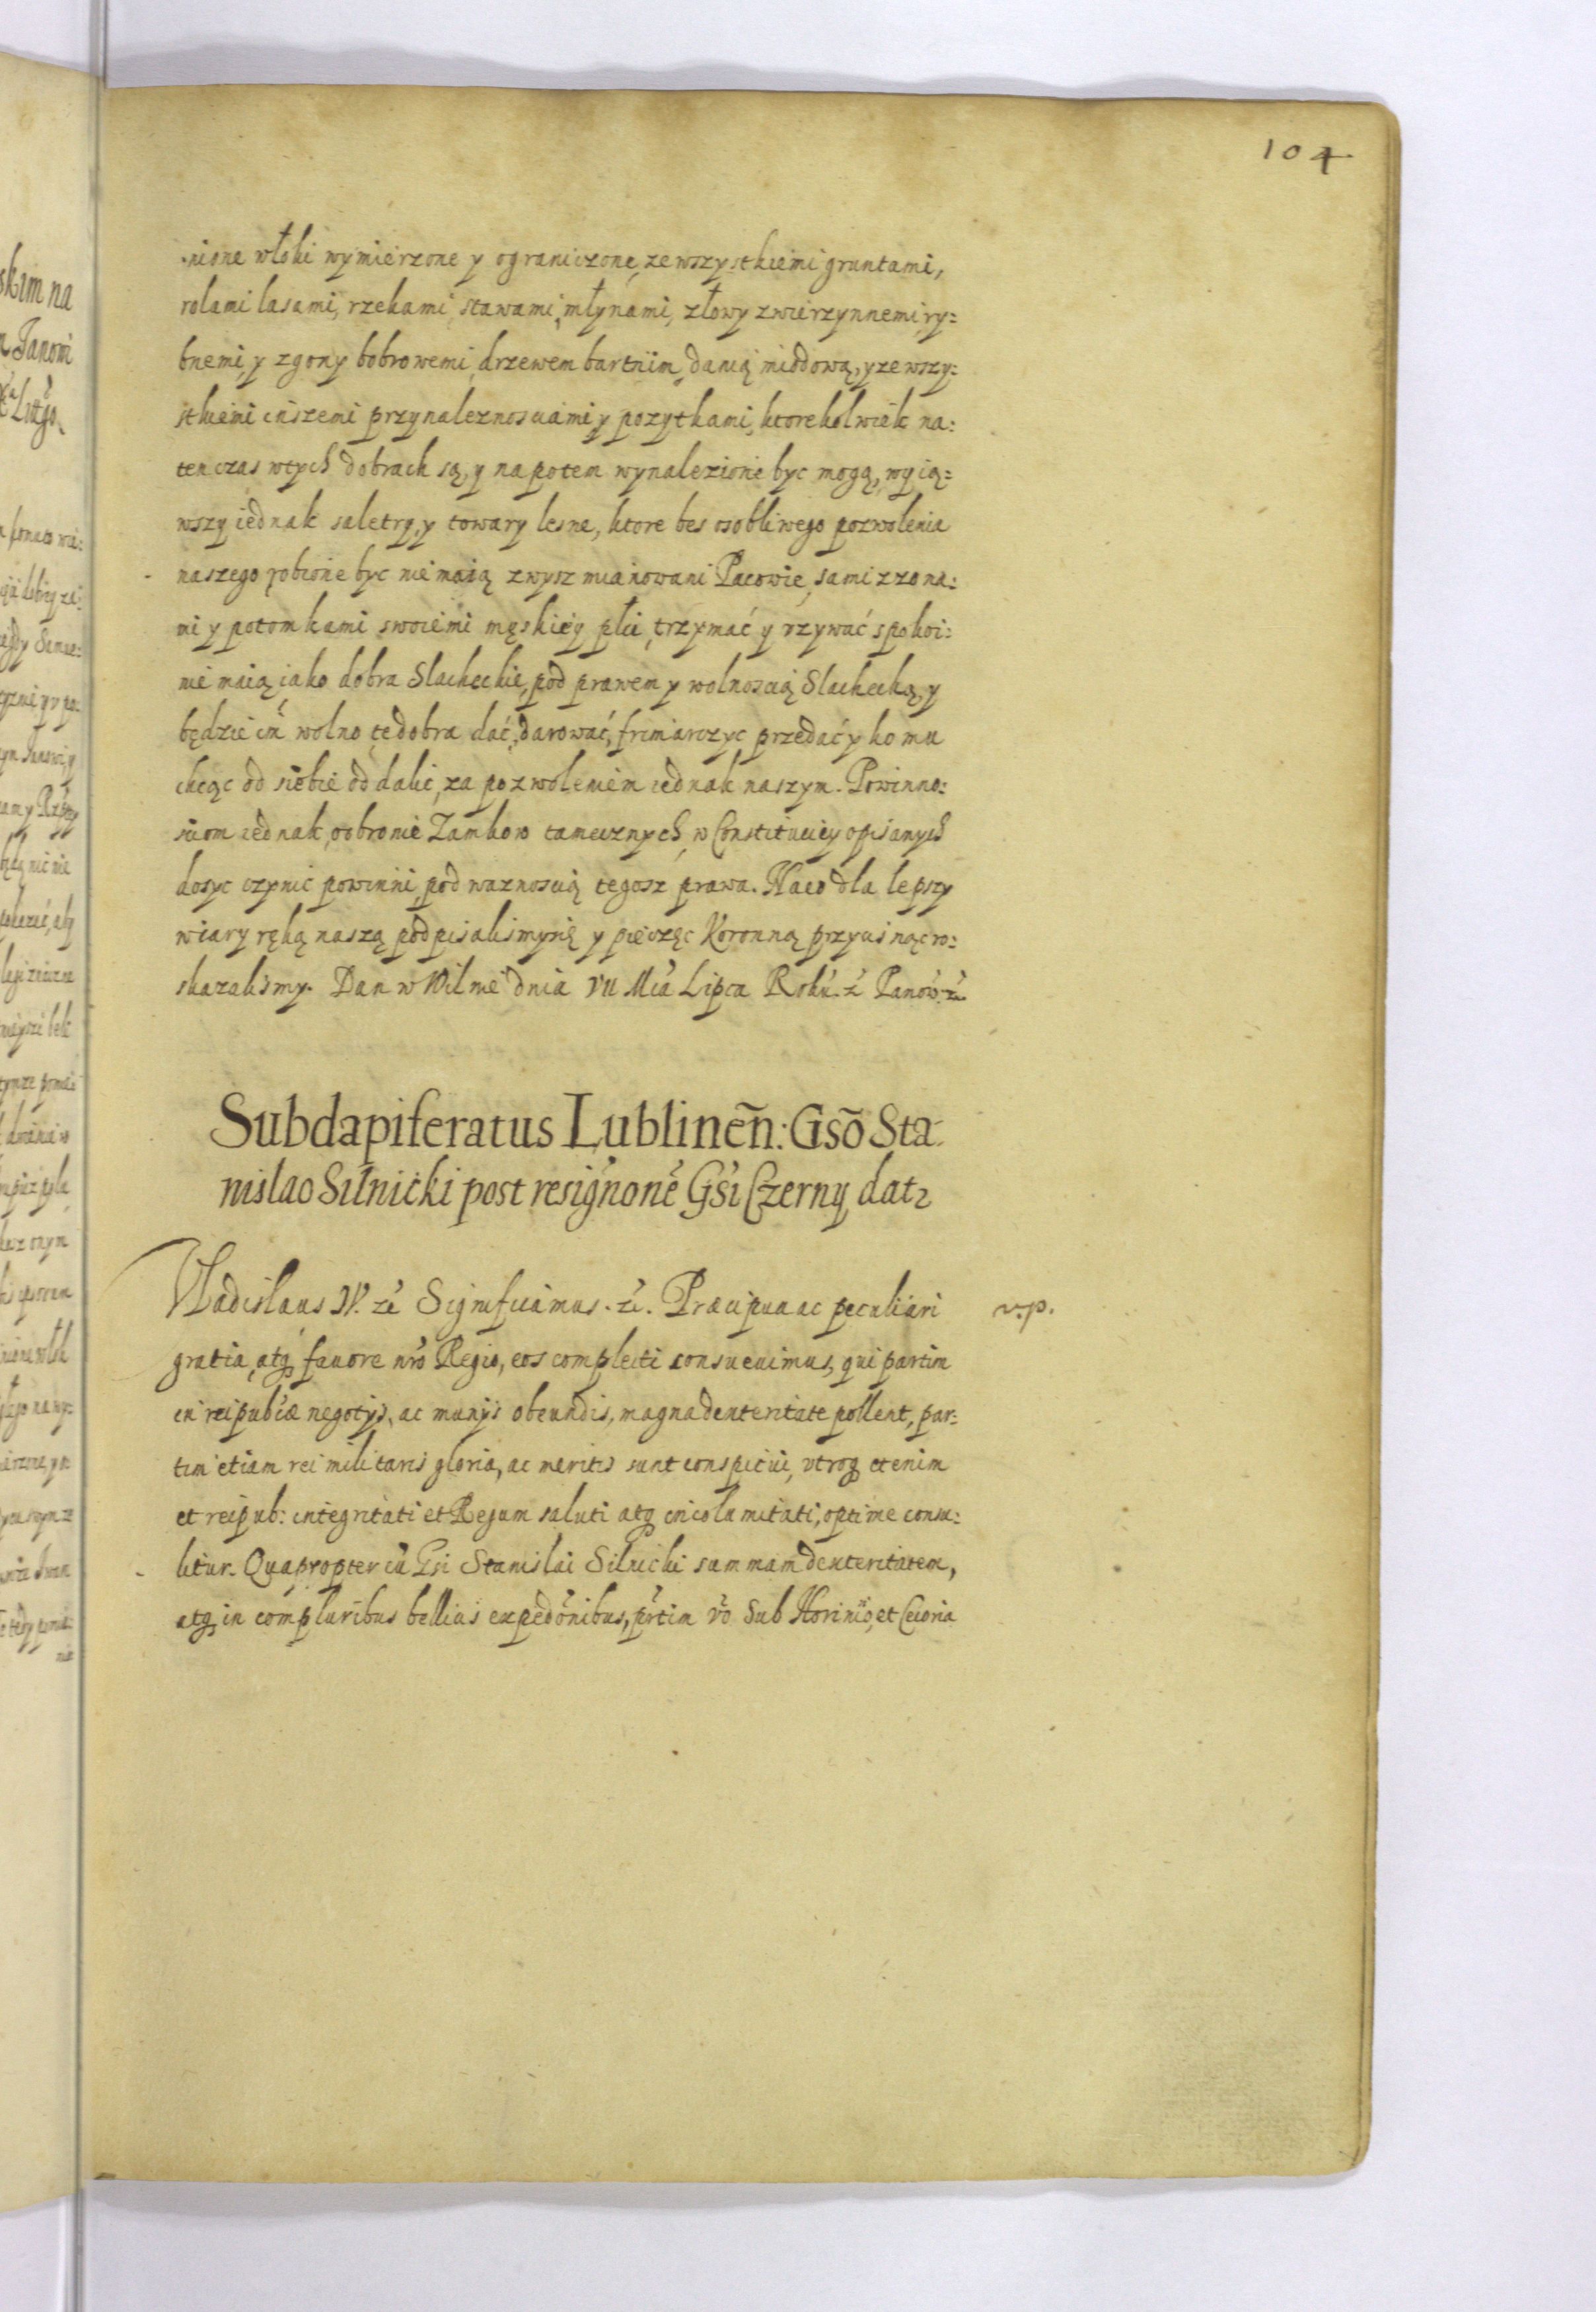 104
nione włoki wymierzone y ograniczone, ze wszystkiemi gruntami,
rolami lasami, rzekami, stawami, młynami, z łowy zwierzynnemi, ry:
bnemi, y zgony bobrowemi, drzewem bartnim, danią miodową, y ze wszy:
stkiemi inszemi przynaleznosciami y pozytkami, ktorekolwiek na:
tenczas w tych dobrach są, y na potem wynalezione byc mogą, wyią:
wszy iednak saletry, y towary lesne, ktore bes osobliwego pozwolenia
naszego robione byc nie maią zwysz mianowani Pacowie, sami z zona:
mi y potomkami swoiemi męskiey płci, trzymać y vzywać spokoi:
nie maią, iako dobra Slacheckie, pod prawem y wolnoscią Slachecką, y
będzie im̃ wolno te dobra dać, darować, frimarczyc przedać y komu
chcąc od siebie oddalic, za pozwoleniem iednak naszym. Powinno:
sciom iednak, o obronie Zamkow tamecznych, w Constitucięy opisanych
dosyc czynic powinni, pod waznoscią tegosz prawa. Na co dla lepszy
wiary ręką naszą podpisalismy się y pieczęc Koronną przycisnąc ro:
skazalismy. Dan w Wilnie dnia VII Mca Lipca Roku. z̃ Panow: z̃
Subdapiferatus Lublineñ: Gsõ Sta:
nislao Silnicki post resignonē Gsi Czerny datꝛ
Vladislaus IV. zẽ Significamus. z̃. Præcipua ac peculiari
v.p.
gratia, atqꝫ fauore nrõ Regio, eos complecti consueuimus, qui partim
in reipubcæ negotijs, ac munijs obeundis, magna dexteritate pollent, par:
tim etiam rei militaris gloria, ac meritis sunt conspicui, vtroqꝫ etenim
et reipub: integritati et Regum saluti atqꝫ incolumitati, optime consu:
litur. Quapropter cũ Gsi Stanislai Silnicki summam dexteritatem,
atqꝫ in compluribus bellicis expedõnibus, prtim võ sub et Cecoria